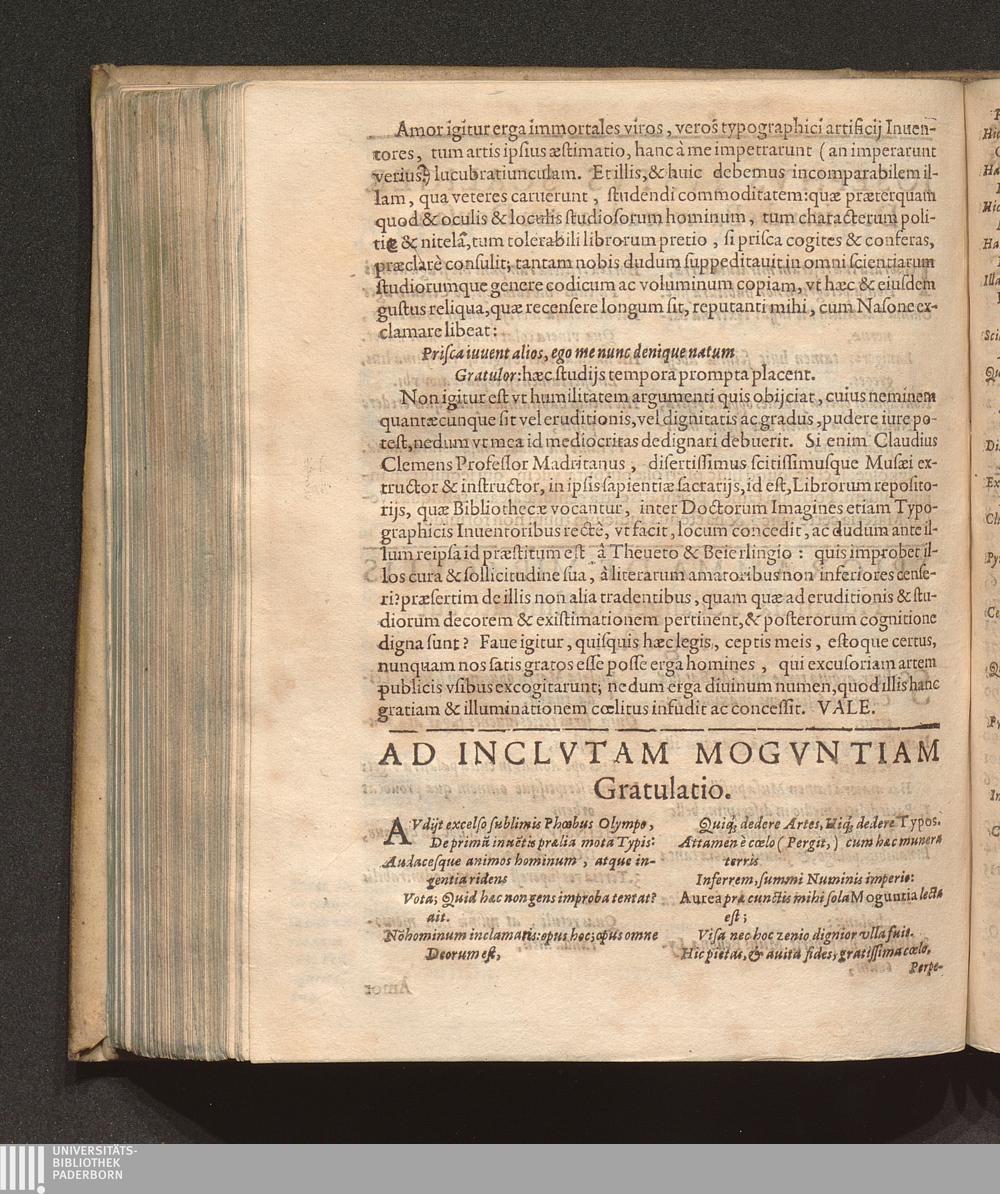 Amor igitur erga immortales viros, veros typographici artificij Inuen-
tores, tum artis ipsius æstimatio, hanc à me impetrarunt (an imperarunt
verius?) lucubratiunculam. Et illis, & huic debemus incomparabilem il-
lam, qua veteres caruerunt, studendi commoditatem: quæ præterquam
quod & oculis & loculis studiosorum hominum, tum characterum poli-
tie & nitelâ, tum tolerabili librorum pretio, si prisca cogites & conferas,
præclarè consulit; tantam nobis dudum suppeditauit in omni scientiarum
studiorumque genere codicum ac voluminum copiam, vt hæc & eiusdem
gustus reliqua, quæ recensere longum sit, reputanti mihi, cum Nasone ex-
clamare libeat:
Prisca iuuent alios, ego me nunc denique natum
Gratulor: hæc studijs tempora prompta placent.
Non igitur est vt humilitatem argumenti quis obijciat, cuius neminem
quantæcunque sit vel eruditionis, vel dignitatis ac gradus, pudere iure po-
test, nedum vt mea id mediocritas dedignari debuerit. Si enim Claudius
Clemens Professor Madritanus, disertissimus scitissimusque Musæi ex-
tructor & instructor, in ipsis sapientiæ sacrarijs, id est, Librorum reposito-
rijs, quæ Bibliothecæ vocantur, inter Doctorum Imagines etiam Typo-
graphicis Inuentoribus rectè, vt facit, locum concedit, ac dudum ante il-
lum reipsa id præstitum est â Theueto & Beierlingio: quis improbet il-
los cura & sollicitudine sua, â literarum amatoribus non inferiores cense-
ri? præsertim de illis non alia tradentibus, quam quæ ad eruditionis & stu-
diorum decorem & existimationem pertinent, & posterorum cognitione
digna sunt? Faue igitur, quisquis hæc legis, ceptis meis, estoque certus,
nunquam nos satis gratos esse posse erga homines, qui excusoriam artem
publicis vsibus excogitarunt; nedum erga diuinum numen, quod illis hanc
gratiam & illuminationem cœlitus infudit ac concessit. VALE.
AD INCLVTAM MOGVNTIAM
Gratulatio.
AVdijt excelso sublimis Phœbus Olympo,
De primũ inuẽtis prælia mota Typis:
Audacesque animos hominum, atque in-
gentia ridens
Vota; Quid hæc non gens improba tentat?
ait.
Nõ hominum inclamatis: opus hoc; opus omne
Deorum est,
Quiq; dedere Artes, Hiq; dedere Typos.
Attamen è cœlo (Pergit,) cum hæc munera
terris
Inferrem, summi Numinis imperio:
Aurea præ cunctis mihi sola Moguntia lecta
est;
Visa nec hoc zenio dignior vlla fuit.
Hic pietas, & auita fides, gratissima cœlo,
Perpe-
UNIVERSITÄTS-
BIBLIOTHEK
PADERBORN